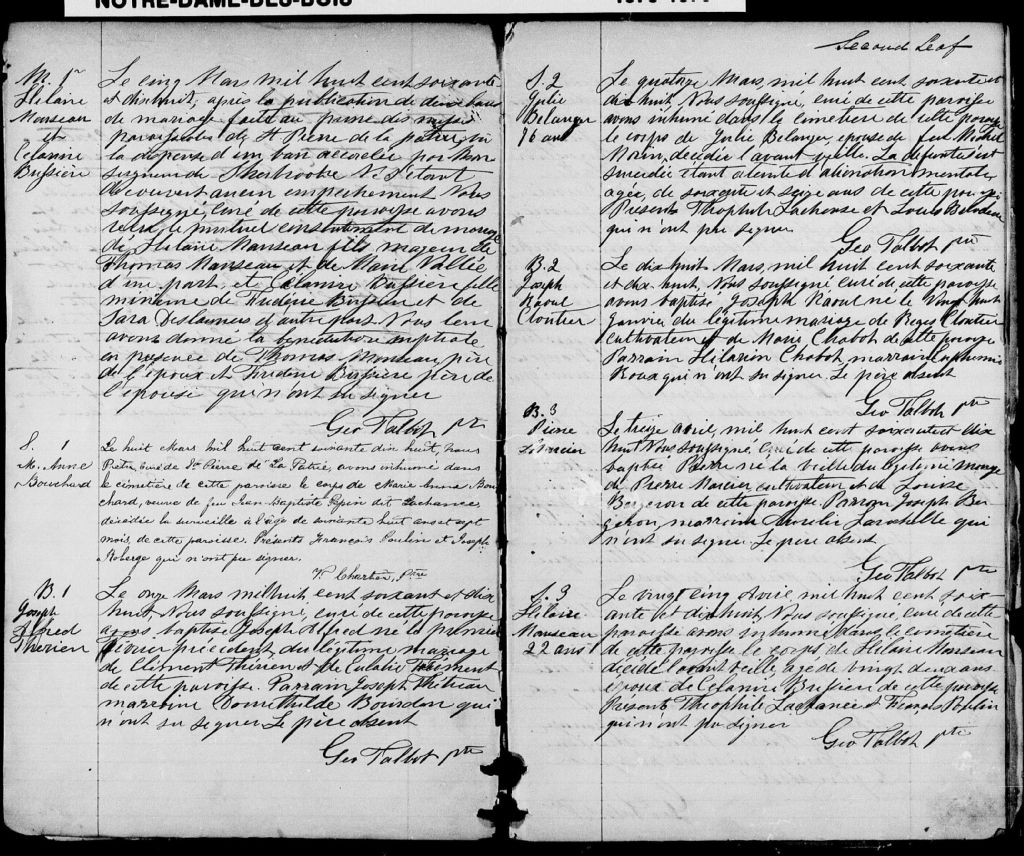 NOTRE-DAME-DES-BOIS
M. 1r
Hilaire
Manseau
et
Célanire
Bussière
Le cinq Mars mil huit cent soixante
et dix huit, après la publication de deux bans
de mariage faite au prône des messes
paroissiales de St Pierre de la patrie, vu
la dispense d'un ban accordée par Mon
seigneur de Sherbrooke
découvert aucun empêchement Nous
soussigné, curé de cette paroisse avons
reçu le mutuel consentement de mariage
de Hilaire Manseau fils majeur de
Thomas Manseau et de Marie Vallée
d'une part, et Célanire Bussière fille
mineure de Frédéric Bussière et de
Sara Deslauriers d'autre part. Nous leur
avons donné la bénédiction nuptiale
en présence de Thomas Manseau père
de l'époux et Frédéric Bussière père de
l'épouse qui n'ont su signer
Geo Talbot ptr
S. 1
M. Anne
Bouchard
Le huit Mars mil huit cent soixante dix huit, nous
Prêtre, curé de St Pierre de La Patrie, avons inhumé dans
le cimetière de cette paroisse le corps de Marie Anna Bou
chard, veuve de feu Jean Baptiste Pepin dit Lachances
décédée la surveille à l'âge de soixante huit ans et sept
mois, de cette paroisse. Présents François Poulin et Joseph
Roberge qui n'ont pu signer.
V. Chartier, Ptre
B. 1
Joseph
Alfred
Therien
Le onze Mars mil huit cent soixant et dix
huit, Nous soussigné, curé de cette paroisse
avons baptisé Joseph Alfred né le premier
Février précédent du légitime mariage
de Clément Thérien et de Eulalie
de cette paroisse. Parrain Joseph
marraine Domethilde Bourdon qui
n'ont su signer Le père absent
Geo Talbot ptr
Second Leaf
S. 2
Julie
Belanger
76 ans
Le quatorze Mars, mil huit cent soixante et
dix huit, Nous soussigné, curé de cette paroisse
avons inhumé dans le cimetière de cette paroisse
le corps de Julie Belanger, épouse de feu Michel
Morin, décédée l'avant veille. La défunte s'est
suicidée étant atteinte d'aliénation mentale,
agée de soixante et seize ans de cette paroisse
Présents Théophile Lachance et Louis Bilodeau
qui n'ont pu signer
Geo Talbot ptr
B. 2
Joseph
Raoul
Cloutier
Le dix huit Mars, mil huit cent soixante
et dix-huit, Nous soussigné curé de cette paroisse
avons baptisé Joseph Raoul né le vingt huit
Janvier du légitime mariage de Regis Cloutier
cultivateur et de Marie Chabot de cette paroisse
Parrain Hilarion Chabot, marraine Euphemie
Roux qui n'ont su signer. Le père absent
Geo Talbot ptr
B. 3
Pierre
Mercier
Le treize avril, mil huit cent soixante et dix
huit Nous soussigné curé de cette paroisse avons
baptisé Pierre né la veille du légitime mariage
de Pierre Mercier, cultivateur et de Louise
Bergeron de cette paroisse Parrain Joseph Ber
geron, marraine Aurelie Larochelle qui
n'ont su signer. Le père absent
Geo Talbot ptr
S. 3
Hilaire
Manseau
22 ans
Le vingt cinq Avril mil huit cent soix-
ante et dix huit, Nous soussigné, curé de cette
paroisse avons inhumé dans le cimetière
de cette paroisse le corps de Hilaire Manseau
décédé l'avant veille, agé de vingt deux ans
époux de Célanire Bussière de cette paroisse
Présents Théophile Lachance et François Poulin
qui n'ont pu signer
Geo Talbot ptr